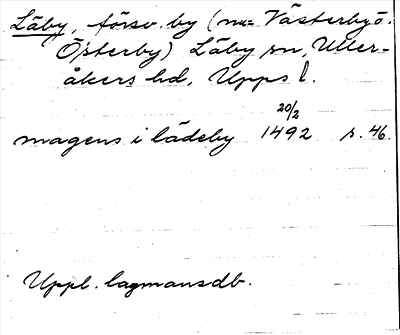 Läby, försv. by (nu= Västerby o.
Österby) Läby sn, Uller-
åkers hd, Upps l.
20/2
magens i lädeby 1492 s. 46.
Uppl. lagmansdb.